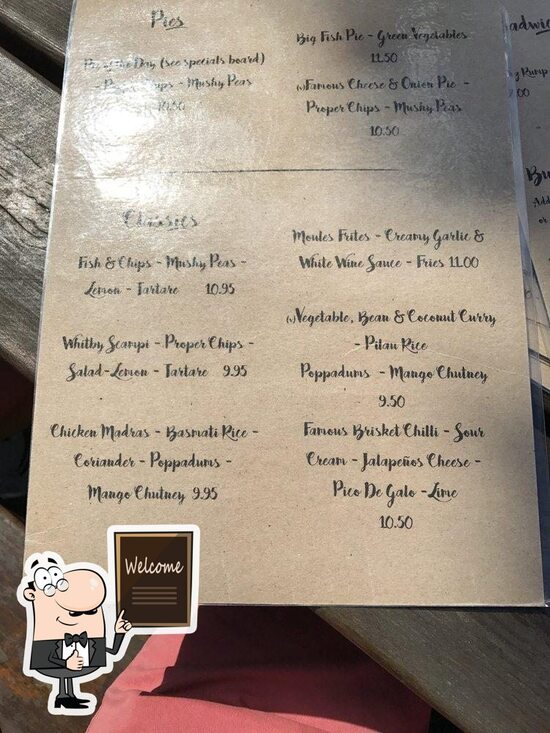 Pies
Pie of the Day (see specials board)
- Proper Chips - Mushy Peas
10.50
Big Fish Pie - Green Vegetables
11.50
(v)Famous Cheese & Onion Pie -
Proper Chips - Mushy Peas
10.50
Classics
Fish & Chips - Mushy Peas -
Lemon - Tartare 10.95
Whitby Scampi - Proper Chips -
Salad-Lemon - Tartare 9.95
Chicken Madras - Basmati Rice -
Coriander - Poppadums -
Mango Chutney 9.95
Moules Frites - Creamy Garlic &
White Wine Sauce - Fries 11.00
(v)Vegetable, Bean & Coconut Curry
- Pilau Rice
Poppadums - Mango Chutney
9.50
Famous Brisket Chilli - Sour
Cream - Jalapeños Cheese -
Pico De Galo -Lime
10.50
Welcome